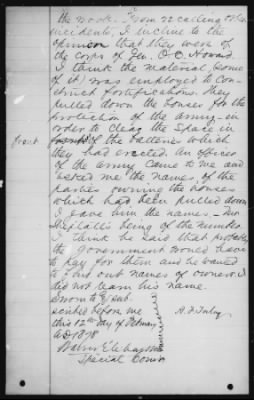 the work. From recalling other
incidents, I incline to the
opinion that they were of
the corps of Gen. O. O. Howard.
I think the material (some
of it) was employed to con-
struct fortifications. They
pulled down the houses for the
protection of the army - in
order to clear the space in
front of the batteries which
they had erected. An officer
of the army came to me and
asked me the names of the
parties owning the houses
which had been pulled down
I gave him the names -
being of the number.
I think he said that probably
the Government would have
to pay for them and he wanted
to find out names of owners. I
did not learn his name.
Sworn to & sub-
scribed before me
this 12th day of February
AD 1878
Special Comr